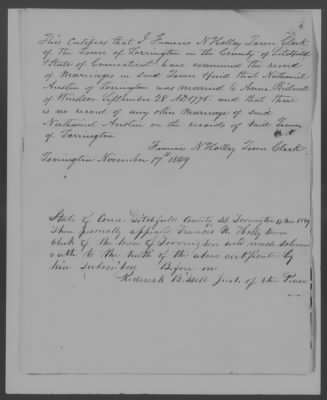 This Certifies that I Francis N Holley Town Clerk
of the Town of Torrington in the County of Litchfield
& State of Connecticut have examined the record
of Marriages in said Town & find that Nathaniel
Austin of Torrington was married to Anna
of Windsor September 28 AD 1775. and that there
is no record of any other Marriage of said
Nathaniel Austin on the records of said Town
of Torrington
Francis N Holley Town Clerk
Torrington November 17th 1849
State of Conn. Litchfield County SS. Torrington
Then personally appeared Francis N. Holley town
clerk of the town of Torrington and made solemn
oath to the truth of the above certificate by
him subscribed Before me
Roderick Bissell Just. of the Peace